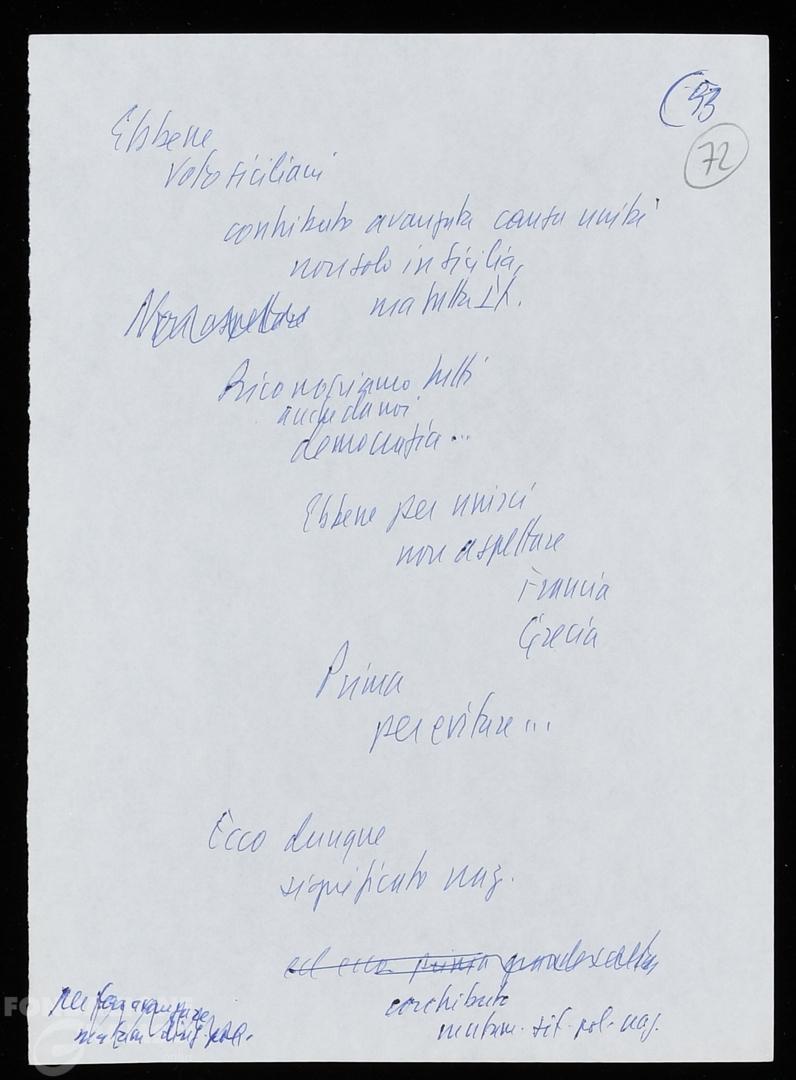 (53
72
Ebbene
Voto siciliani
contributo avanzata causa unità
non solo in Sicilia,
ma tutta It.
Non aspettare
Riconosciamo tutti
anche da noi
democrazia...
Ebbene per unirci
non aspettare
Francia
Grecia
Prima
per evitare...
Ecco dunque
significato naz.
ed ecco prima grande scelta
contributo
mutam. sit. pol. naz.
per far avanzare
mutam. pol.